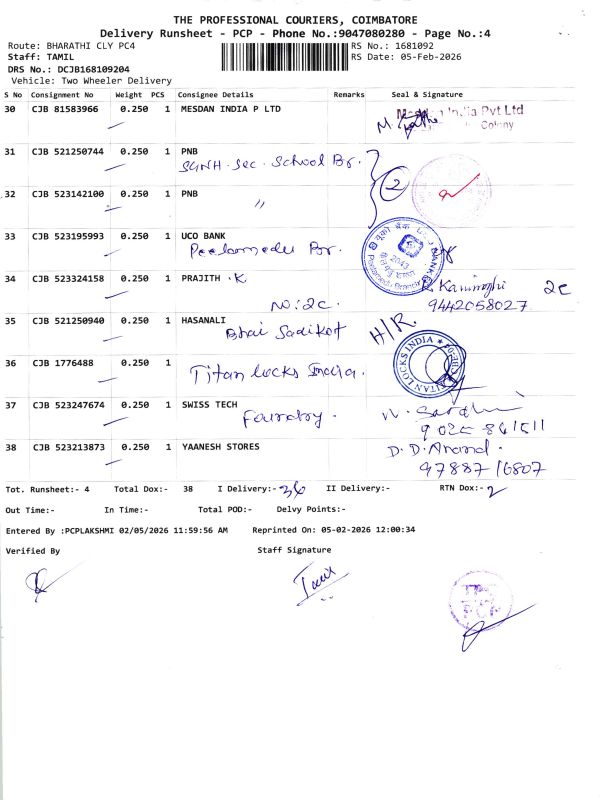 THE PROFESSIONAL COURIERS, COIMBATORE
Delivery Runsheet - PCP - Phone No.:9047080280 - Page No.:4
Route: BHARATHI CLY PC4 RS No.: 1681092
Staff: TAMIL RS Date: 05-Feb-2026
DRS No.: DCJB168109204
Vehicle: Two Wheeler Delivery
S No Consignment No Weight PCS Consignee Details Remarks Seal & Signature
30 CJB 81583966 0.250 1 MESDAN INDIA P LTD India Pvt Ltd
Colony
31 CJB 521250744 0.250 1 PNB
SGNH. Sec. School Br. 2
32 CJB 523142100 0.250 1 PNB
"
33 CJB 523195993 0.250 1 UCO BANK
Peelamedu Br.
34 CJB 523324158 0.250 1 PRAJITH .K
NO: 2C. 2C
9442058027
35 CJB 521250940 0.250 1 HASANALI H/R.
Bhai Sadikot
36 CJB 1776488 0.250 1
Titan locks India. TITAN LOCKS INDIA
37 CJB 523247674 0.250 1 SWISS TECH
Foundry.
38 CJB 523213873 0.250 1 YAANESH STORES D. D. Anand.
97887 16807
Tot. Runsheet:- 4 Total Dox:- 38 I Delivery:- 36 II Delivery:- RTN Dox:- 2
Out Time:- In Time:- Total POD:- Delvy Points:-
Entered By :PCPLAKSHMI 02/05/2026 11:59:56 AM Reprinted On: 05-02-2026 12:00:34
Verified By Staff Signature